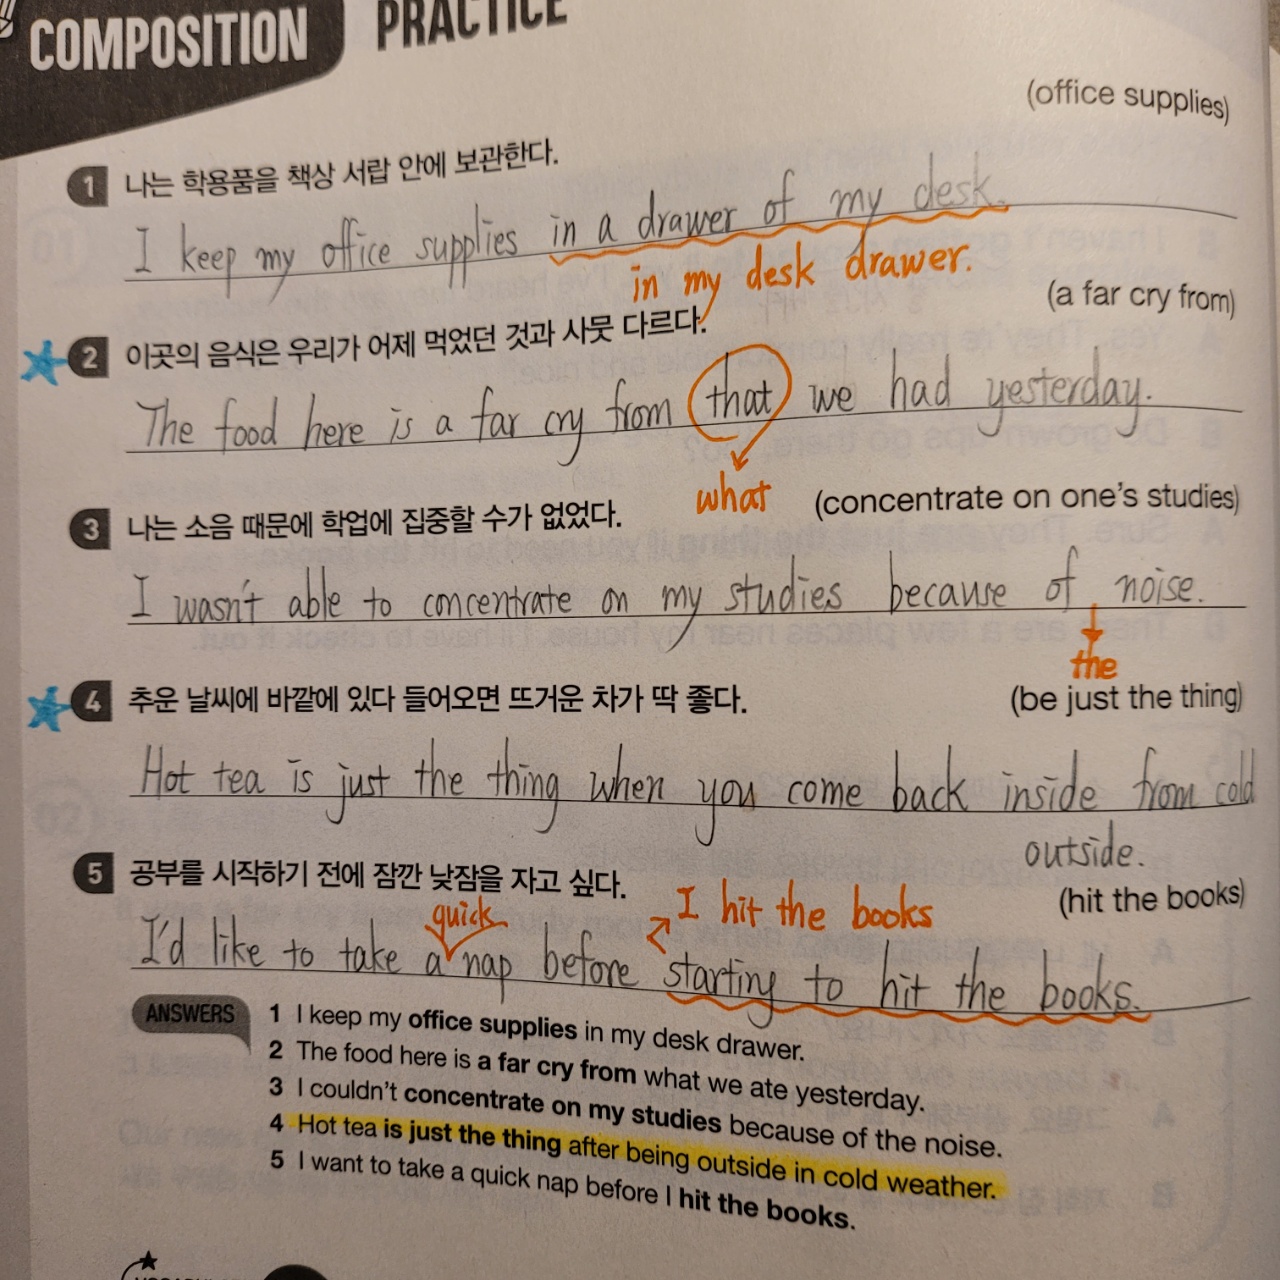 COMPOSITION PRACTICE
(office supplies)
1 나는 학용품을 책상 서랍 안에 보관한다.
I keep my office supplies in a drawer of my desk.
in my desk drawer.
(a far cry from)
2 이곳의 음식은 우리가 어제 먹었던 것과 사뭇 다르다.
The food here is a far cry from that we had yesterday.
what
(concentrate on one's studies)
3 나는 소음 때문에 학업에 집중할 수가 없었다.
I wasn't able to concentrate on my studies because of noise.
the
4 추운 날씨에 바깥에 있다 들어오면 뜨거운 차가 딱 좋다.
(be just the thing)
Hot tea is just the thing when you come back inside from cold
outside.
5 공부를 시작하기 전에 잠깐 낮잠을 자고 싶다.
(hit the books)
quick
I hit the books
I'd like to take a nap before starting to hit the books.
ANSWERS
1 I keep my office supplies in my desk drawer.
2 The food here is a far cry from what we ate yesterday.
3 I couldn't concentrate on my studies because of the noise.
4 Hot tea is just the thing after being outside in cold weather.
5 I want to take a quick nap before I hit the books.